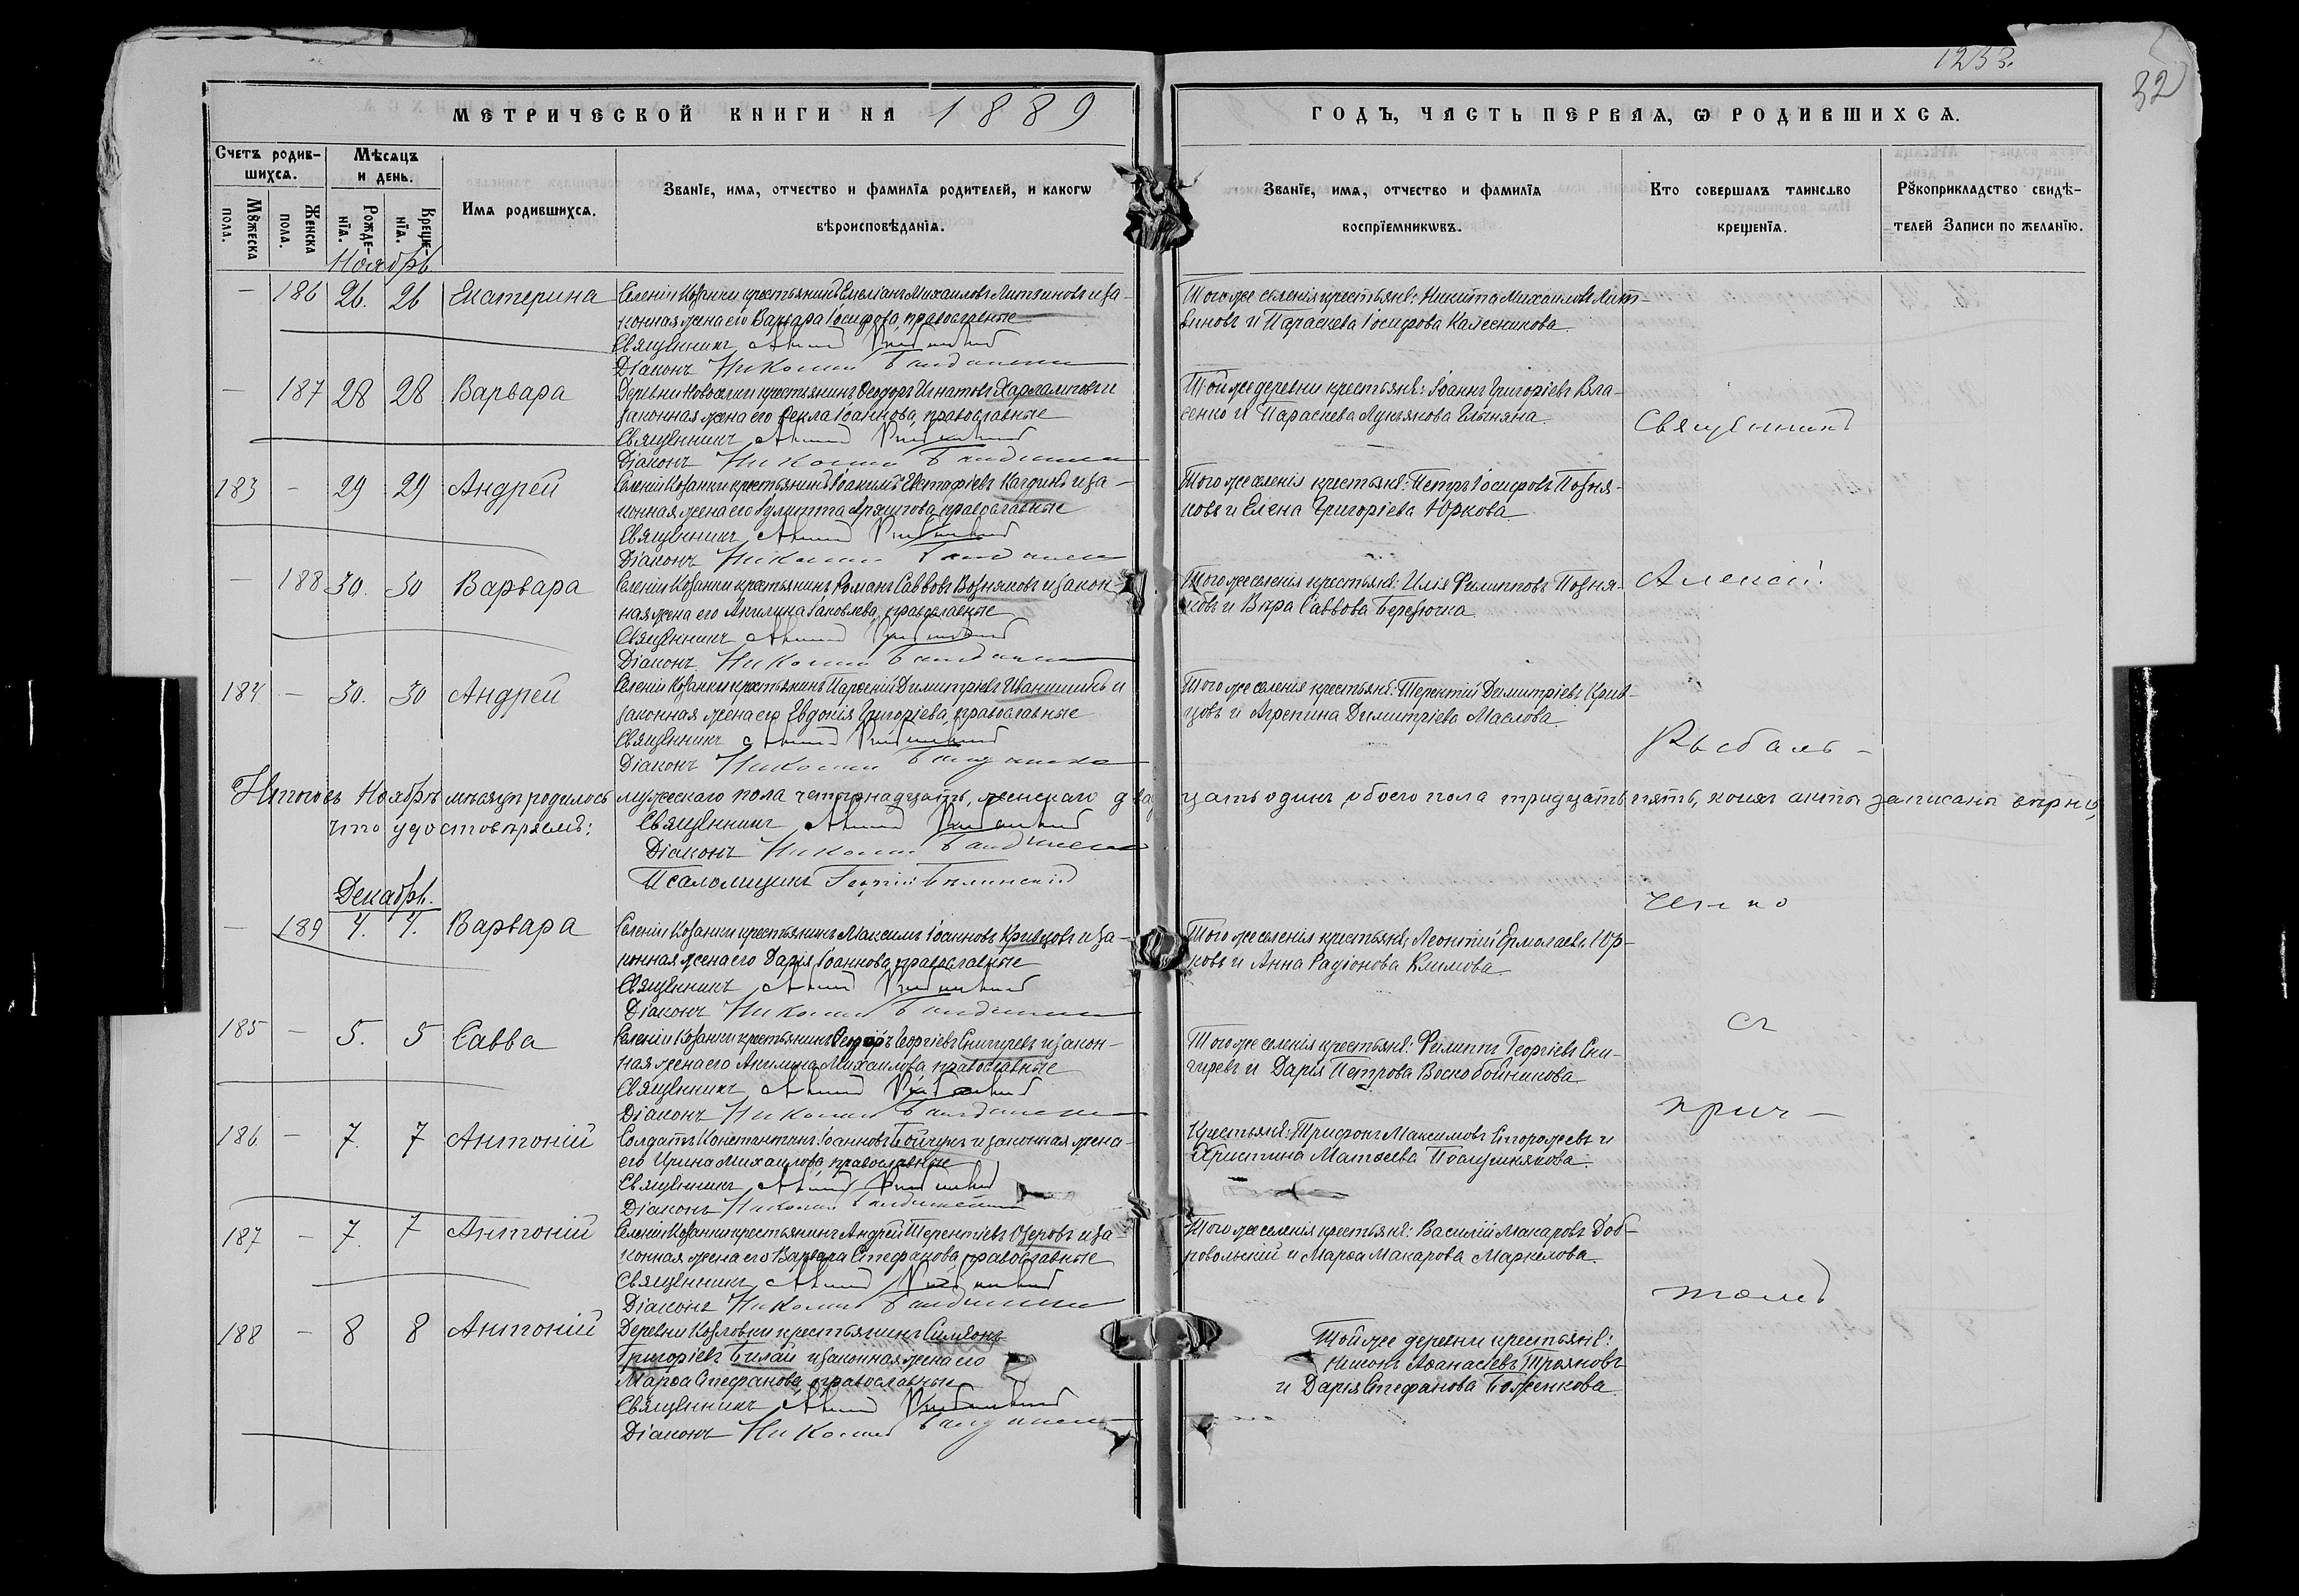 1233.
32
МЕТРИЧЕСКОЙ КНИГИ НА 1889
ГОДЪ, ЧАСТЬ ПЕРВАЯ, Ѡ РОДИВШИХСѦ.
Счетъ родив-
шихсѧ.
Мѣсѧцъ
и день.
Мꙋжеска
пола.
Женска
пола.
Рожде-
нїѧ.
Креще-
нїѧ.
Имѧ родившихсѧ.
Званїе, имѧ, отчество и фамилїѧ родителей, и какогѡ
вѣроисповѣданїѧ.
Званїе, имѧ, отчество и фамилїѧ
воспрїемникѡвъ.
Кто совершалъ таинство
крещенїѧ.
Рꙋкоприкладство свидѣ-
телей Записи по желанїю.
Ноябрь
– 186 26. 26 Екатерина
Селенія Козанки крестьянинъ Емеліанъ Михаиловъ Литвиновъ и за-
конная жена его Варвара Іосифова, православные
Священникъ
Діаконъ Николай
Того же селенія крестьяне: Никита Михаиловъ Лит-
виновъ и Параскева Іосифова Калесникова.
– 187 28 28 Варвара
Деревни Новоселки крестьянинъ Ѳеодоръ Игнатовъ и
законная жена его Ѳекла Іоаннова, православные
Священникъ
Діаконъ Николай
Той же деревни крестьяне: Іоаннъ Григоріевъ Вла-
сенко и Параскева Лукьянова
Священникъ
183 – 29 29 Андрей
Селенія Козанки крестьянинъ Іоакимъ Евстафіевъ и за-
конная жена его православные
Священникъ
Діаконъ Николай
Того же селенія крестьяне: Петръ Іосифовъ Позня-
ковъ и Елена Григоріева Юркова.
– 188 30. 30 Варвара
Селенія Козанки крестьянинъ Романъ Саввовъ Возняковъ и закон-
ная жена его Акилина Іаковлева, православные
Священникъ
Діаконъ Николай
Того же селенія крестьяне: Илія Филипповъ Позня-
ковъ и Вѣра Саввова Березючка.
Алексій
184 – 30. 30 Андрей
Селенія Козанки крестьянинъ Парѳеній Димитріевъ Иваншинъ и
законная жена его Евдокія Григоріева, православные
Священникъ
Діаконъ Николай
Того же селенія крестьяне: Терентій Димитріевъ Крив-
цовъ и Агрепина Димитріева Маслова.
Рыбаль-
Итого въ Ноябрѣ мѣсяцѣ родилось мужескаго пола четырнадцать, женскаго двадцать одинъ, обоего пола тридцать пять, коихъ акты записаны вѣрно,
что удостовѣряемъ:
Священникъ
Діаконъ Николай
Псаломщикъ Георгій Бѣлинскій
Декабрь.
ченко
– 189 4. 4. Варвара
Селенія Козанки крестьянинъ Максимъ Іоанновъ Кривцовъ и за-
конная жена его Дарія Іоаннова, православные
Священникъ
Діаконъ Николай
Того же селенія крестьяне: Леонтій Ермолаевъ Юр-
ковъ и Анна Радіонова Климова.
съ
185 – 5. 5 Савва
Селенія Козанки крестьянинъ Георгіевъ Снигиревъ и закон-
ная жена его Акилина Михаилова, православные
Священникъ
Діаконъ Николай
Того же селенія крестьяне: Филиппъ Георгіевъ Сни-
гиревъ и Дарія Петрова Воскобойникова.
прич-
186 – 7. 7 Антоній
Солдатъ Константинъ Іоанновъ Бойчукъ и законная жена
его Ирина Михаилова, православные
Священникъ
Діаконъ Николай
Крестьяне: Трифонъ Максимовъ Сторожевъ и
Христина Матѳеева
187 – 7. 7 Антоній
Селенія Козанки крестьянинъ Андрей Терентіевъ Озеровъ и за-
конная жена его Варвара Стефанова, православные
Священникъ
Діаконъ Николай
Того же селенія крестьяне: Василій Макаровъ Доб-
ровольскій и Марѳа Макарова Маркелова.
томъ
188 – 8 8 Антоній
Деревни Козловки крестьянинъ Симеонъ
Григоріевъ Билай и законная жена его
Марѳа Стефанова, православные
Священникъ
Діаконъ Николай
Той же деревни крестьяне:
Аѳанасіевъ Трояновъ
и Дарія Стефанова Боженкова.